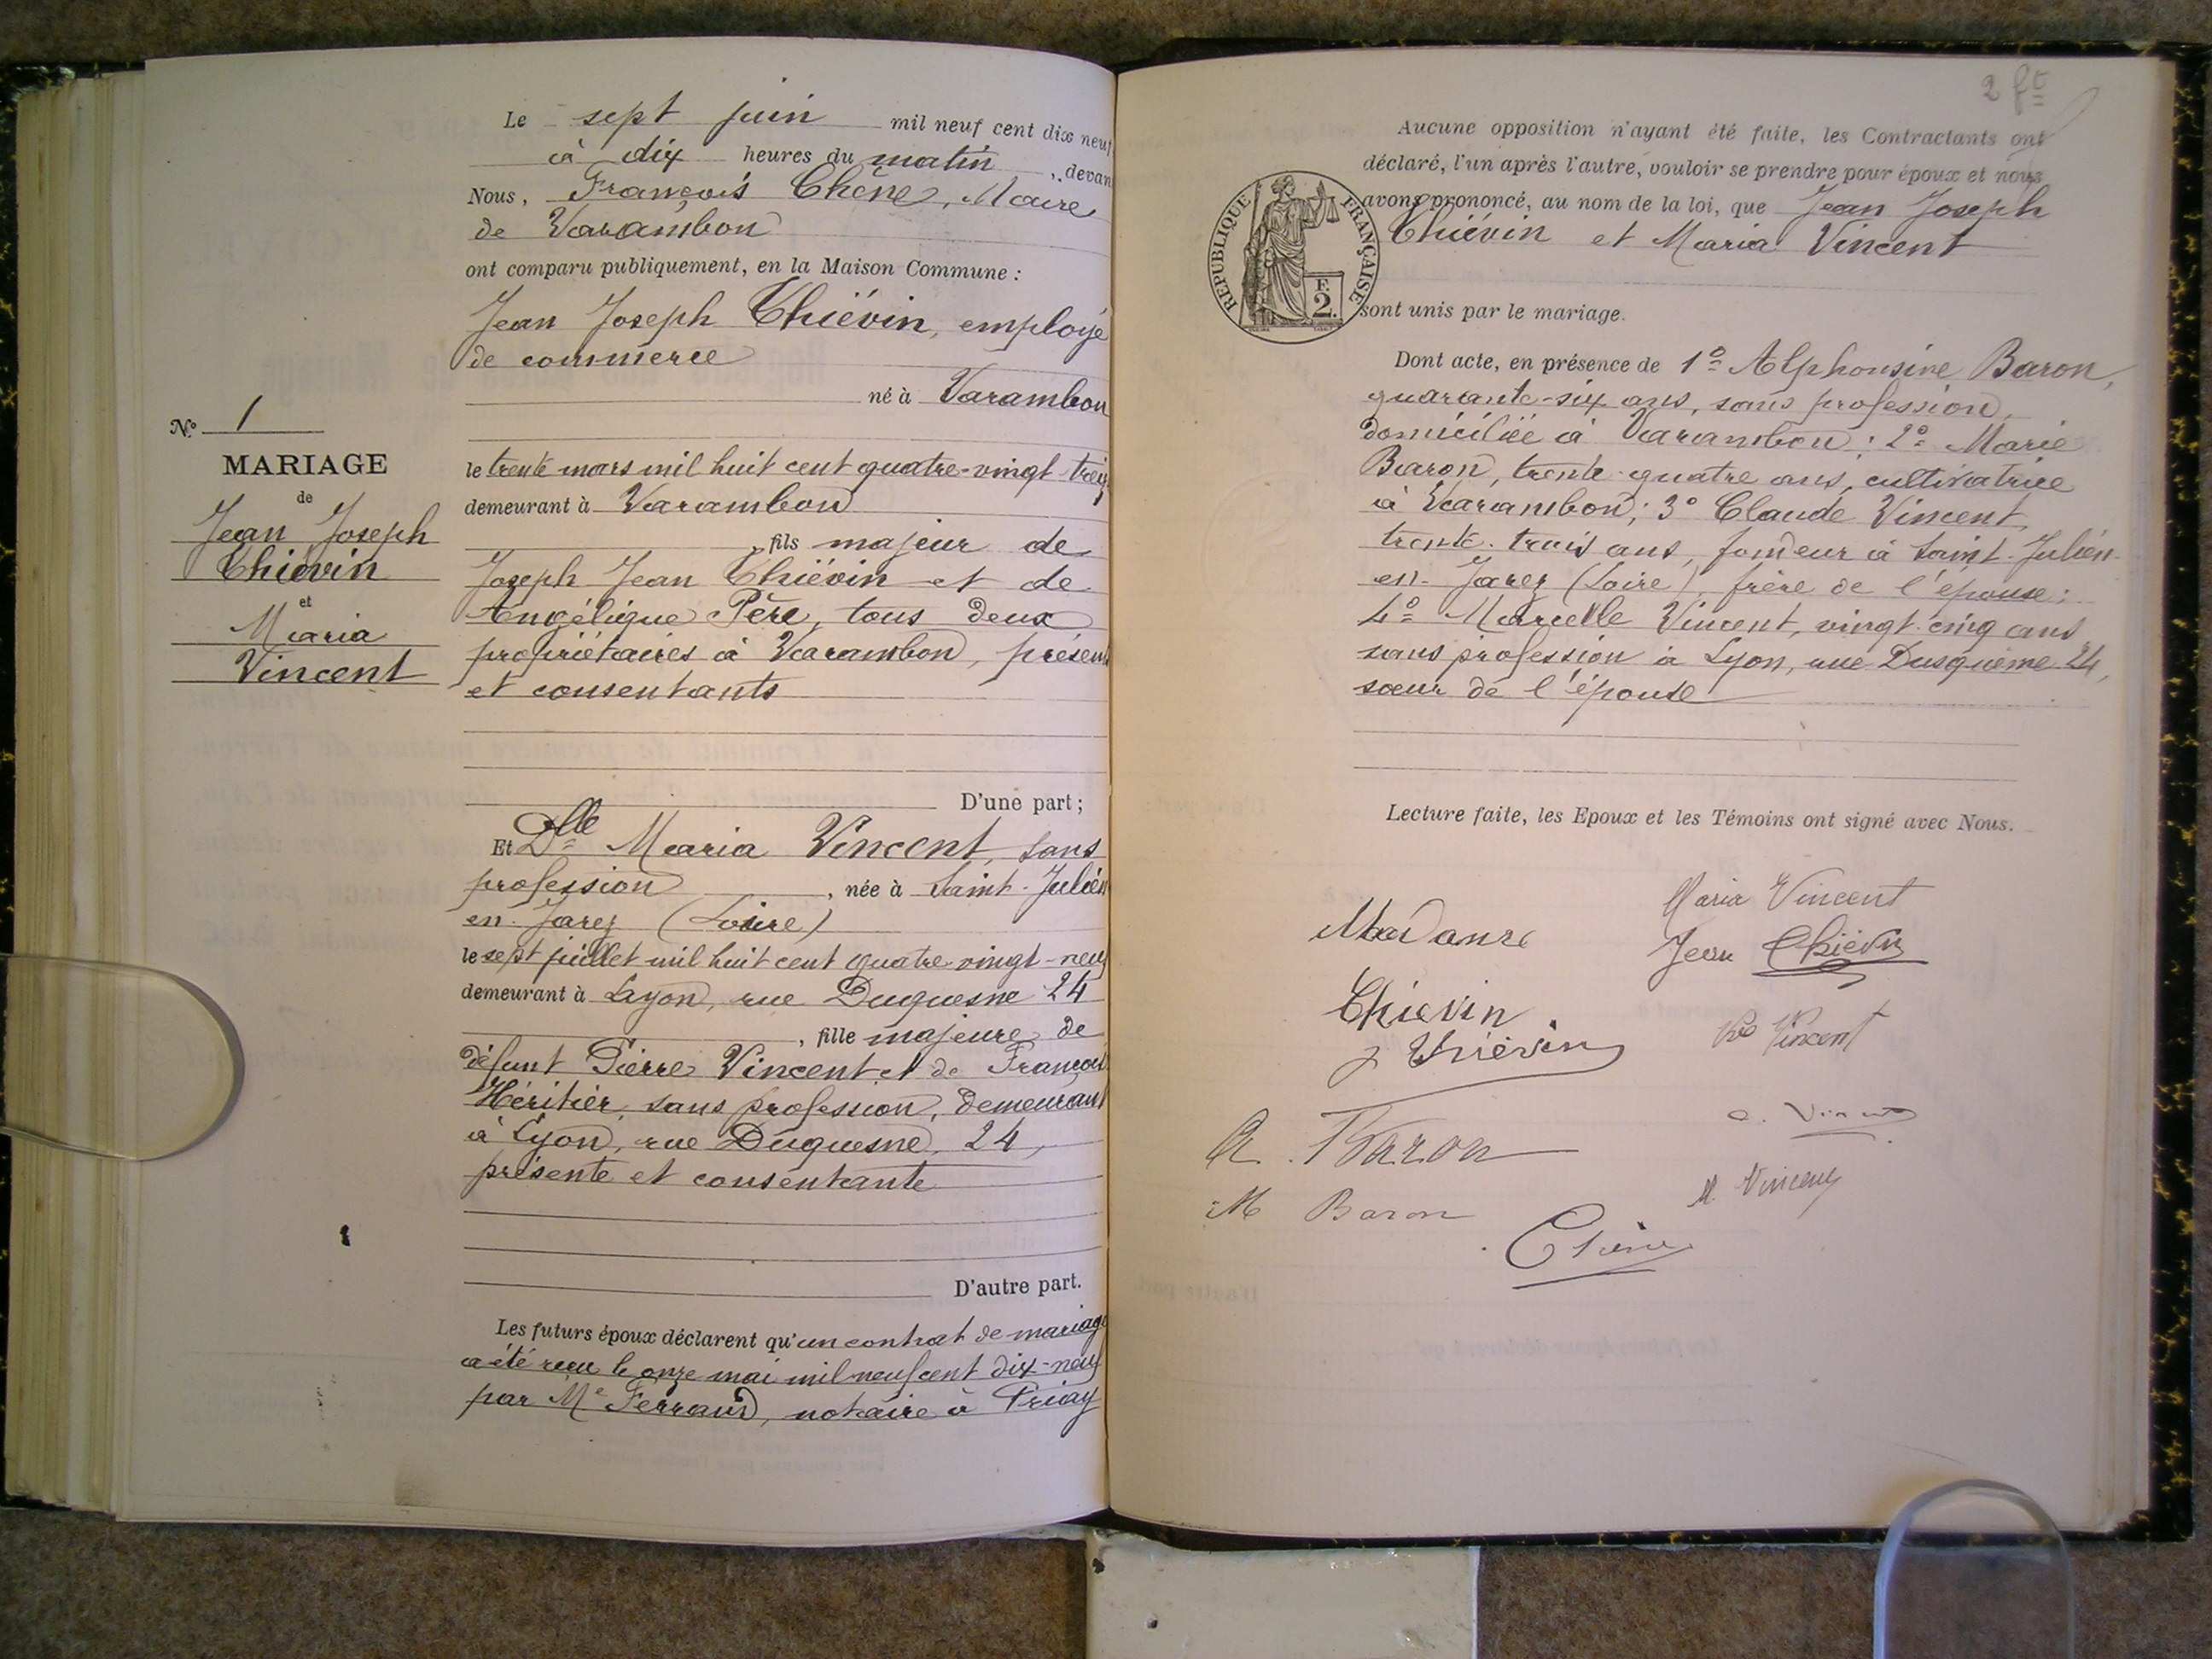 Le sept juin mil neuf cent dix neuf
à dix heures du matin, devan
Nous, François Chêne, Maire
de Varambon
ont comparu publiquement, en la Maison Commune :
Jean Joseph Thiévin, employé
de commerce
né à Varambon
le trente mars mil huit cent quatre-vingt-treize
demeurant à Varambon
, fils majeur de
Joseph Jean Thiévin et de
Angélique Père, tous deux
propriétaires à Varambon, présents
et consentants
D'une part ;
Et Dlle Maria Vincent, sans
profession, née à Saint-Julien
en-Jarez (Loire)
le sept juillet mil huit cent quatre-vingt-neuf
demeurant à Lyon, rue Duguesne 24
, fille majeure de
défunt Pierre Vincent et de
Héritier, sans profession, demeurant
à Lyon, rue Duguesne, 24,
présente et consentante
D'autre part.
Les futurs époux déclarent qu'un contrat de mariage
a été reçu le onze mai mil neuf cent dix-neuf
par Me Ferrand, notaire à Priay
No 1
MARIAGE
de
Jean Joseph
Thiévin
et
Maria
Vincent
2 ft
Aucune opposition n'ayant été faite, les Contractants ont
déclaré, l'un après l'autre, vouloir se prendre pour époux et nous
avons prononcé, au nom de la loi, que Jean Joseph
Thiévin et Maria Vincent
sont unis par le mariage.
RÉPUBLIQUE FRANÇAISE
F.
2.
Dont acte, en présence de 1º Alphonsine Baron,
quarante-six ans, sans profession,
domiciliée à Varambon ; 2º Marie
Baron, trente-quatre ans, cultivatrice
à Varambon ; 3º Claude Vincent,
trente-trois ans, fondeur à Saint-Julien-
en-Jarez (Loire), frère de l'épouse ;
4º Marcelle Vincent, vingt-cinq ans
sans profession à Lyon, rue Dusquème 24,
sœur de l'épouse
Lecture faite, les Epoux et les Témoins ont signé avec Nous.
Maria Vincent
Jean Thiévin
Thievin
J Thiévin
Vve Vincent
A. Baron
M Baron
M. Vincent
Chêne